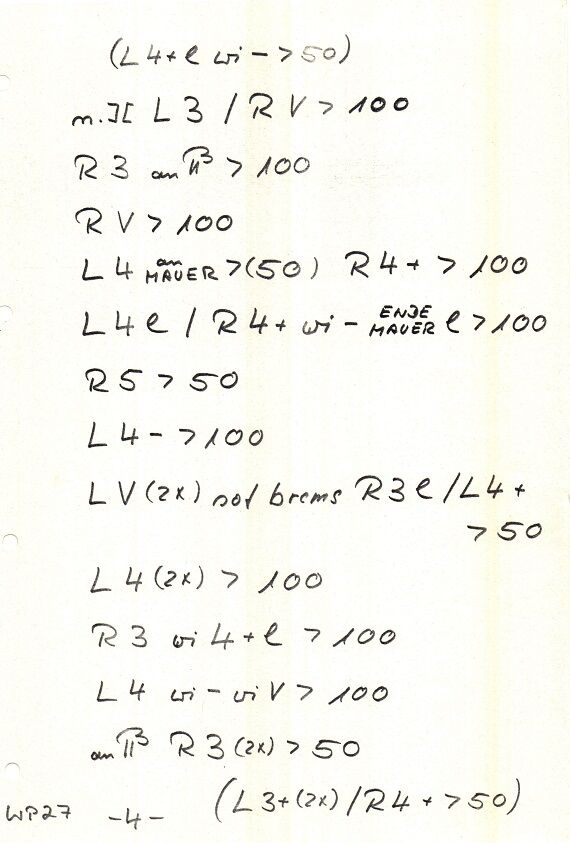 (L4+e wi->50)
n.][ L3/RV>100
R3 an >100
RV>100
L4 an MAUER >(50) R4+ >100
L4e/R4+ wi- ENDE MAUER e>100
R5>50
L4->100
LV(2x) sof brems R3e/L4+
>50
L4(2x)>100
R3 wi 4+e >100
L4 wi-wiV>100
an R3(2x)>50
(L3+(2x)/R4+>50)
WP27 -4-